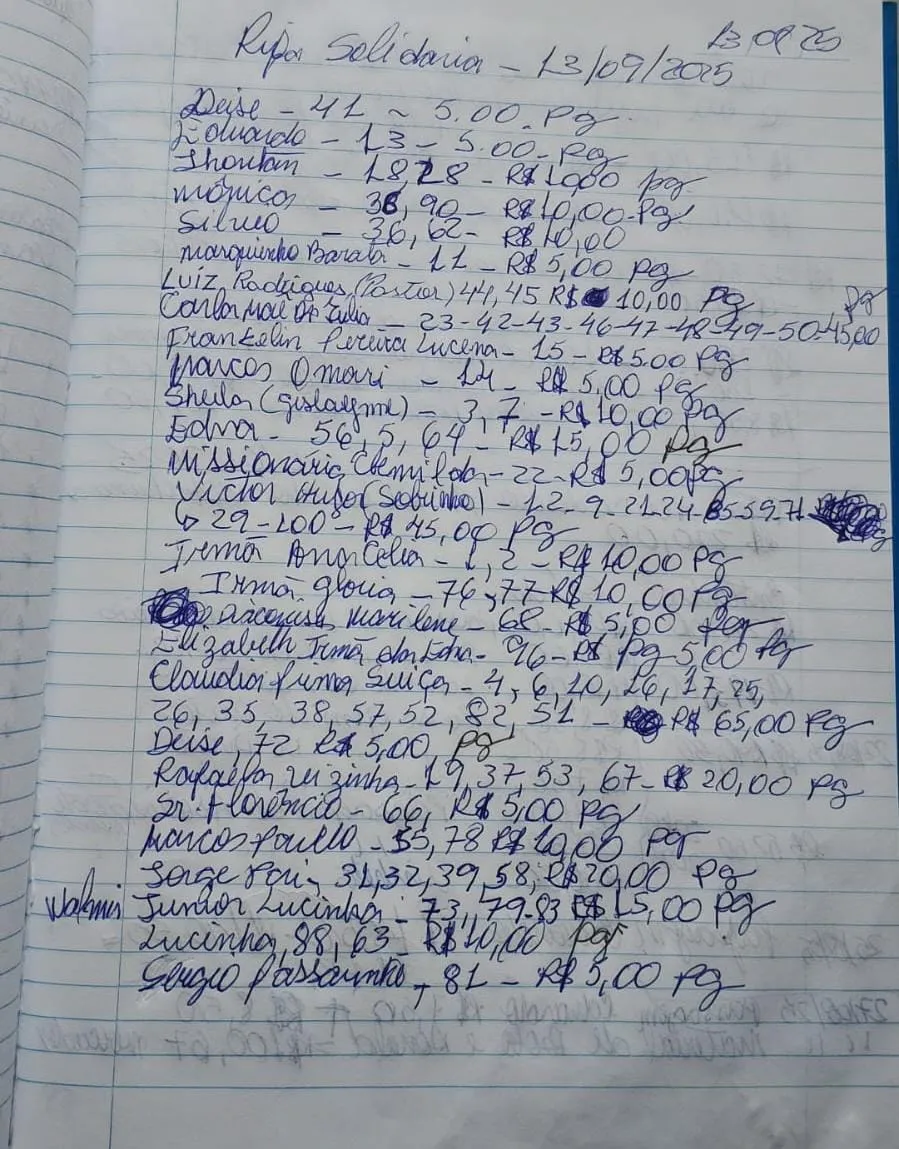 13/09/25
Rifa Solidaria - 13/09/2025
Deise - 41 - 5.00 - Pg
Eduardo - 13 - 5.00 - Pg
Jhontan - 18,28 - R$ 10,00 pg
Mônica - 38, 90 - R$ 10,00 - Pg
Silvio - 36, 62 - R$ 10,00
Marquinho Barata - 11 - R$ 5,00 pg
Luíz Rodrigues (Pastor) 44, 45 R$ 10,00 Pg
Carla - 23-42-43-46-47-48-49-50-45,00 pg
Frankelin Pereira Lucena - 15 - R$ 5.00 Pg
Marcos Omari - 14 - R$ 5,00 Pg
Sheila (Gislayne) - 3, 7 - R$ 10,00 Pg
Edna - 56, 5, 64 - R$ 15,00 Pg
Missionária - 22 - R$ 5,00 pg
Victor Hugo (Sobrinho) - 12-9-21-24- -59-71
↳ 29-100 - R$ 45,00 Pg
Irmã Ana Célia - 1, 2 - R$ 10,00 Pg
Irmã Gloria - 76, 77 R$ 10,00 Pg
Diaconisa Marilene - 68 - R$ 5,00 Pg
Elizabeth Irmã da Edna - 96 - R$ Pg 5,00 Pg
Claudia Prima Suiça - 4, 6, 10, 16, 17, 25,
26, 35, 38, 57, 52, 82, 51 - R$ 65,00 Pg
Deise, 72 R$ 5,00 pg
Rafaella Vizinha - 19, 37, 53, 67 - R$ 20,00 Pg
Sr. Florêncio - 66, R$ 5,00 Pg
Marcos Paullo - 55, 78 R$ 10,00 pg
Jorge Pai - 31, 32, 39, 58, R$ 20,00 Pg
Junior Lucinha - 73, 79-83 R$ 15,00 Pg
Lucinha, 88, 63 - R$ 10,00 pg
Sergio Passarinho, 81 - R$ 5,00 pg